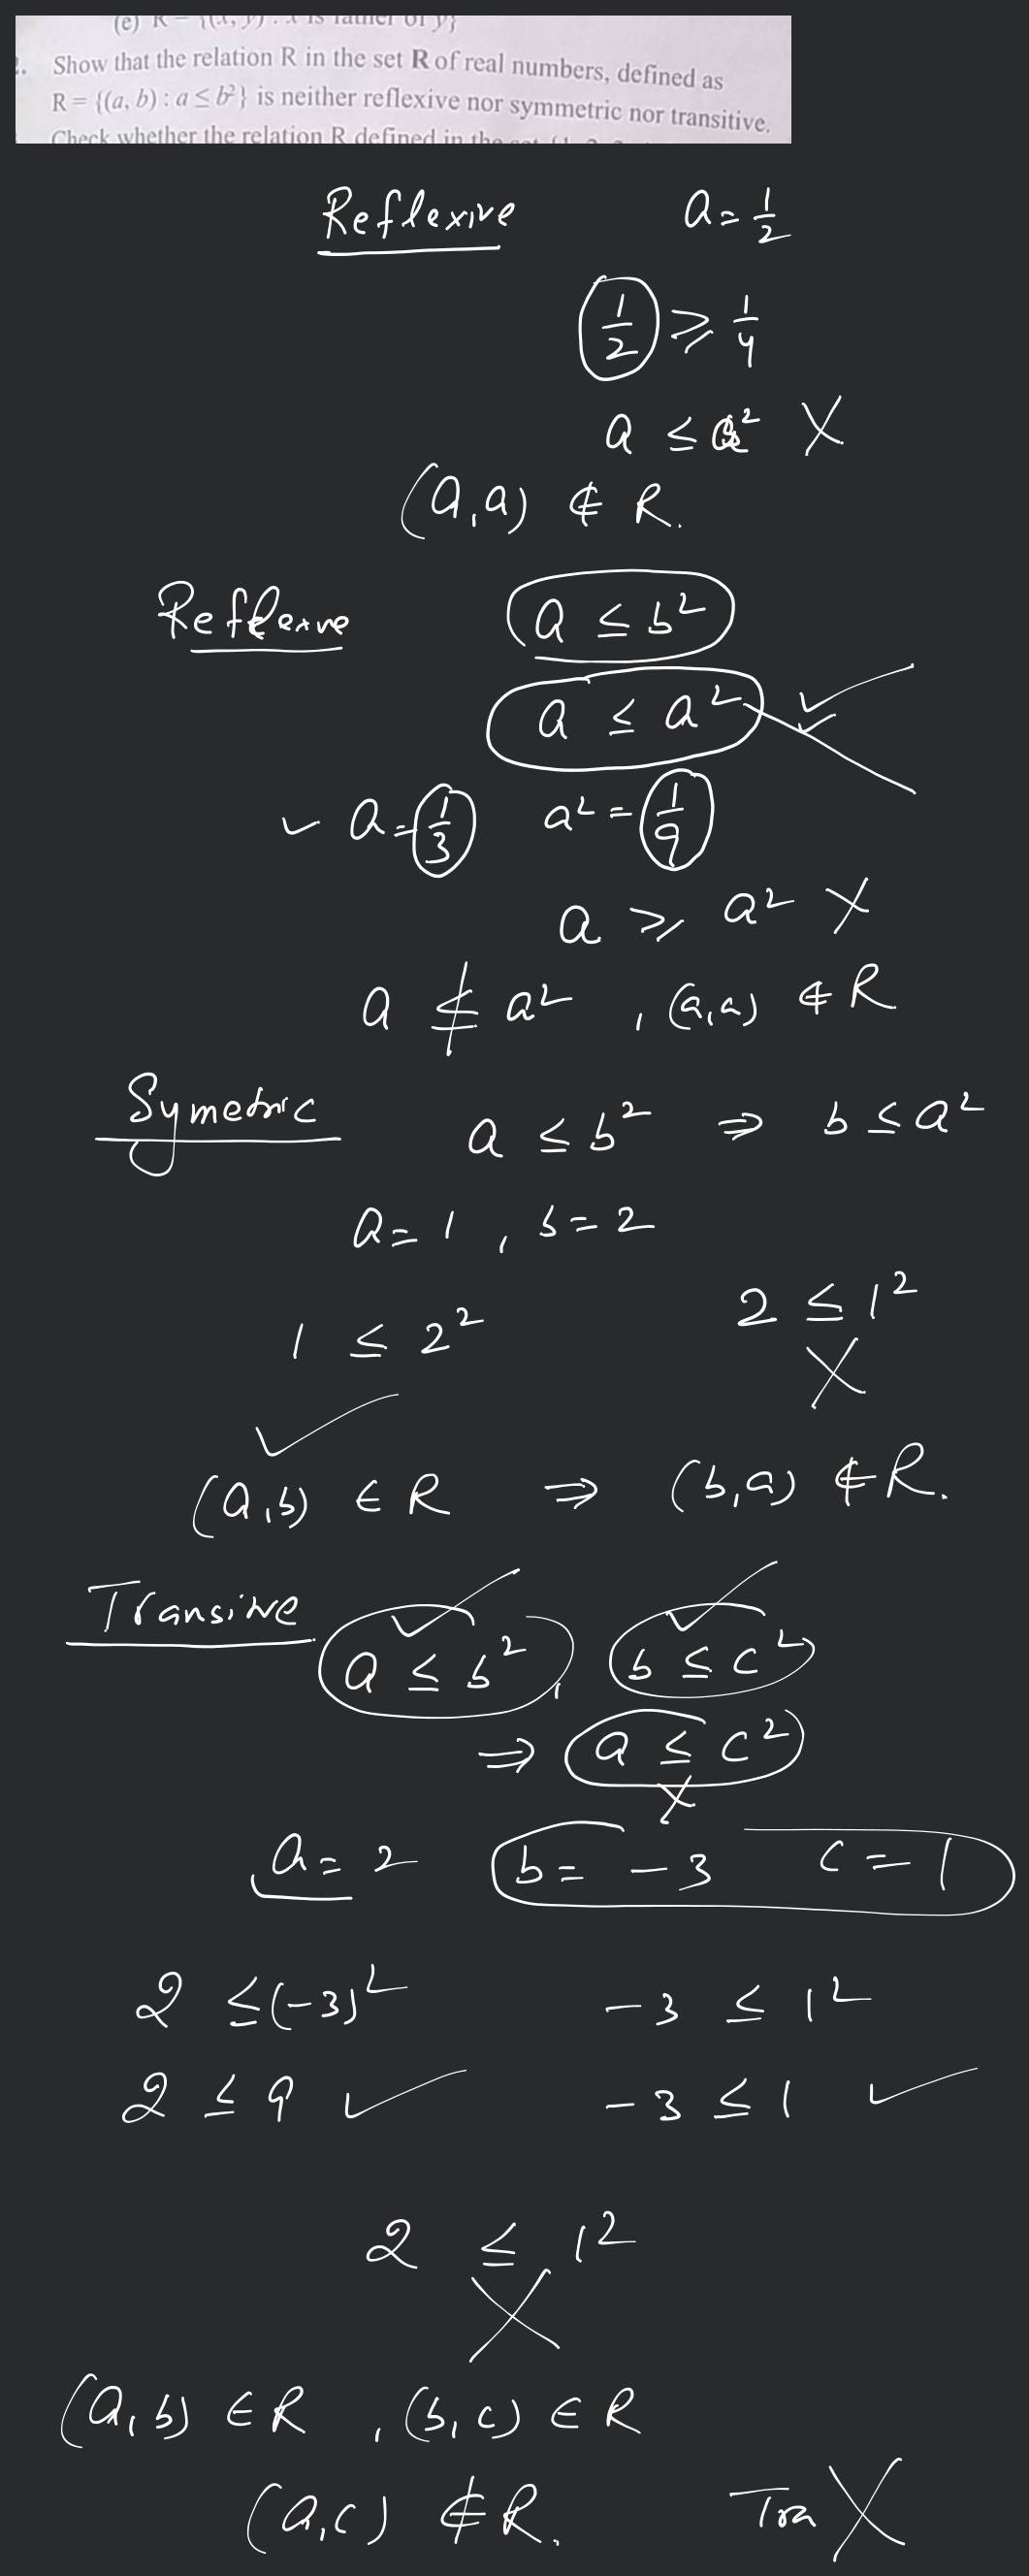 (e) R = {(x, y) : x is father of y}
2. Show that the relation R in the set R of real numbers, defined as
R = {(a, b) : a ≤ b²} is neither reflexive nor symmetric nor transitive.
Check whether the relation R defined in the set
Reflexive a = 1/2
1/2 ⩾ 1/4
a ≤ a² X
(a,a) ∉ R.
Reflexive a ≤ b²
a ≤ a² ✓
✓ a = 1/3 a² = 1/9
a ⩾ a² X
a ≰ a² , (a,a) ∉ R
Symetric a ≤ b² ⇒ b ≤ a²
a = 1 , b = 2
1 ≤ 2² 2 ≤ 1²
✓ X
(a,b) ∈ R ⇒ (b,a) ∉ R.
Transitve a ≤ b² , b ≤ c²
⇒ a ≤ c²
X
a = 2 b = -3 c = 1
2 ≤ (-3)² -3 ≤ 1²
2 ≤ 9 ✓ -3 ≤ 1 ✓
2 ≤ 1²
X
(a,b) ∈ R , (b,c) ∈ R
(a,c) ∉ R. Tra X